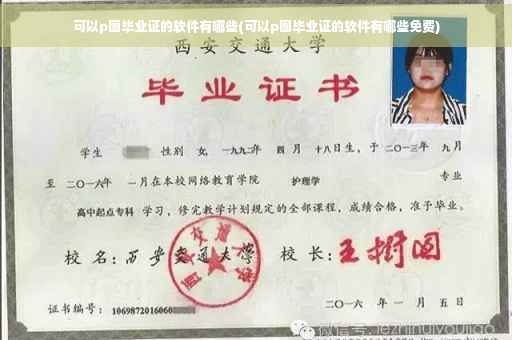 可以p图毕业证的软件有哪些(可以p图毕业证的软件有哪些免费)
西安交通大学
毕业证书
学生 性别 女, 一九九二年 四月 十八日生, 于 二〇一三年 九月
至 二〇一六年 一月在本校网络教育学院 护理学 专业
高中起点专科 学习, 修完教学计划规定的全部课程, 成绩合格, 准予毕业。
校名: 西安交通大学 校长: 王树国
西安交通大学
证书编号: 1069872016060
二〇一六年 一月 五日
微信号: jezhihuiyoujiao